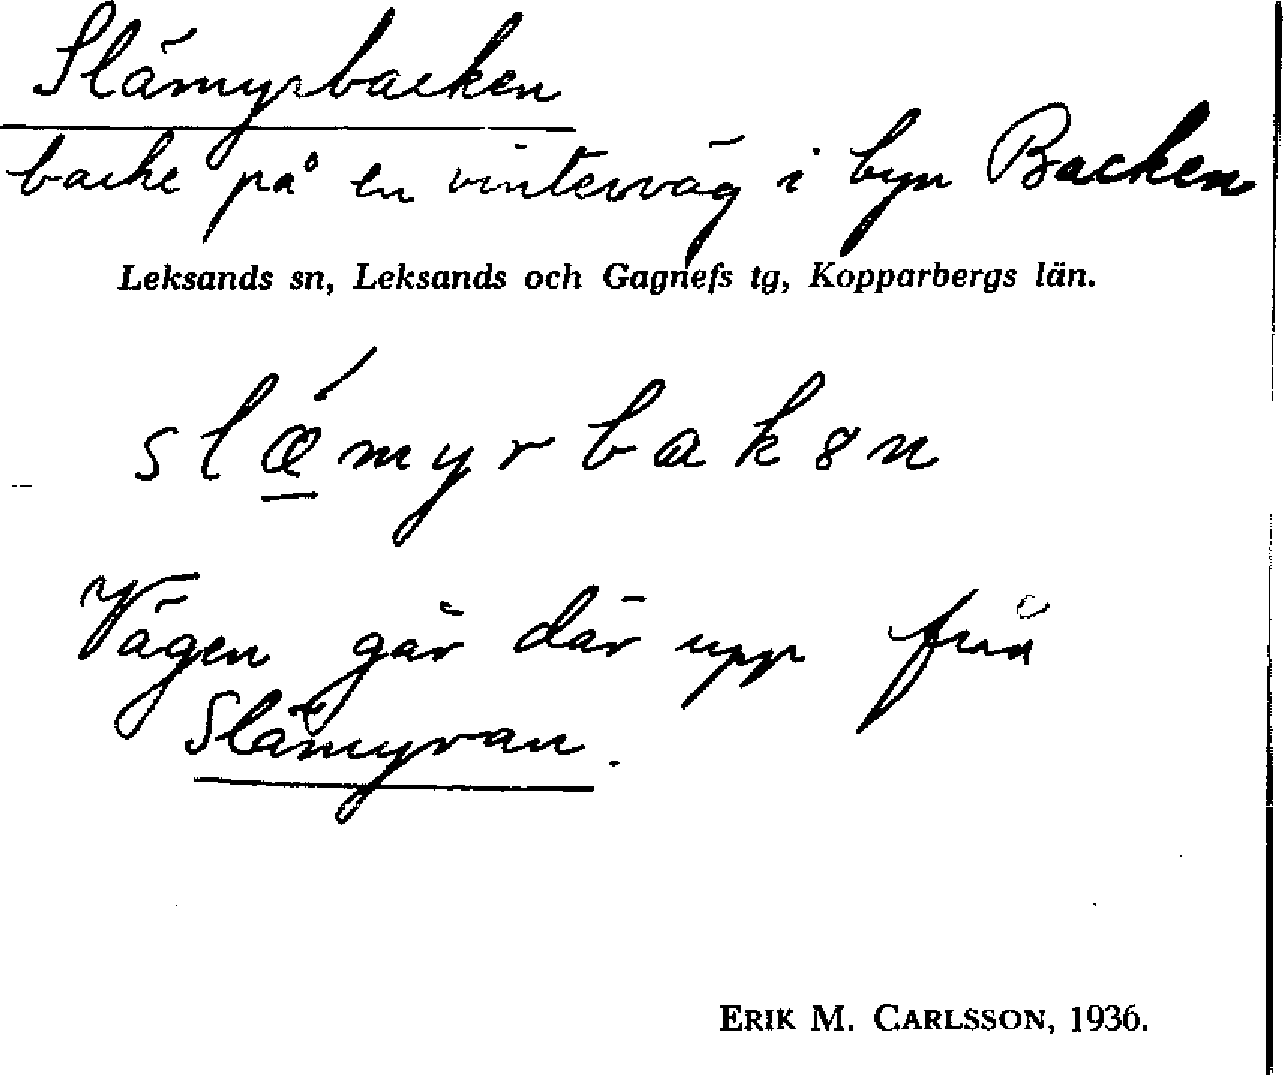 Slämyrbacken
backe på en vinterväg i byn Backen
Leksands sn, Leksands och Gagnefs tg, Kopparbergs län.
slǽmyrbakən
Vägen går där upp från
Slämyran.
ERIK M. CARLSSON, 1936.